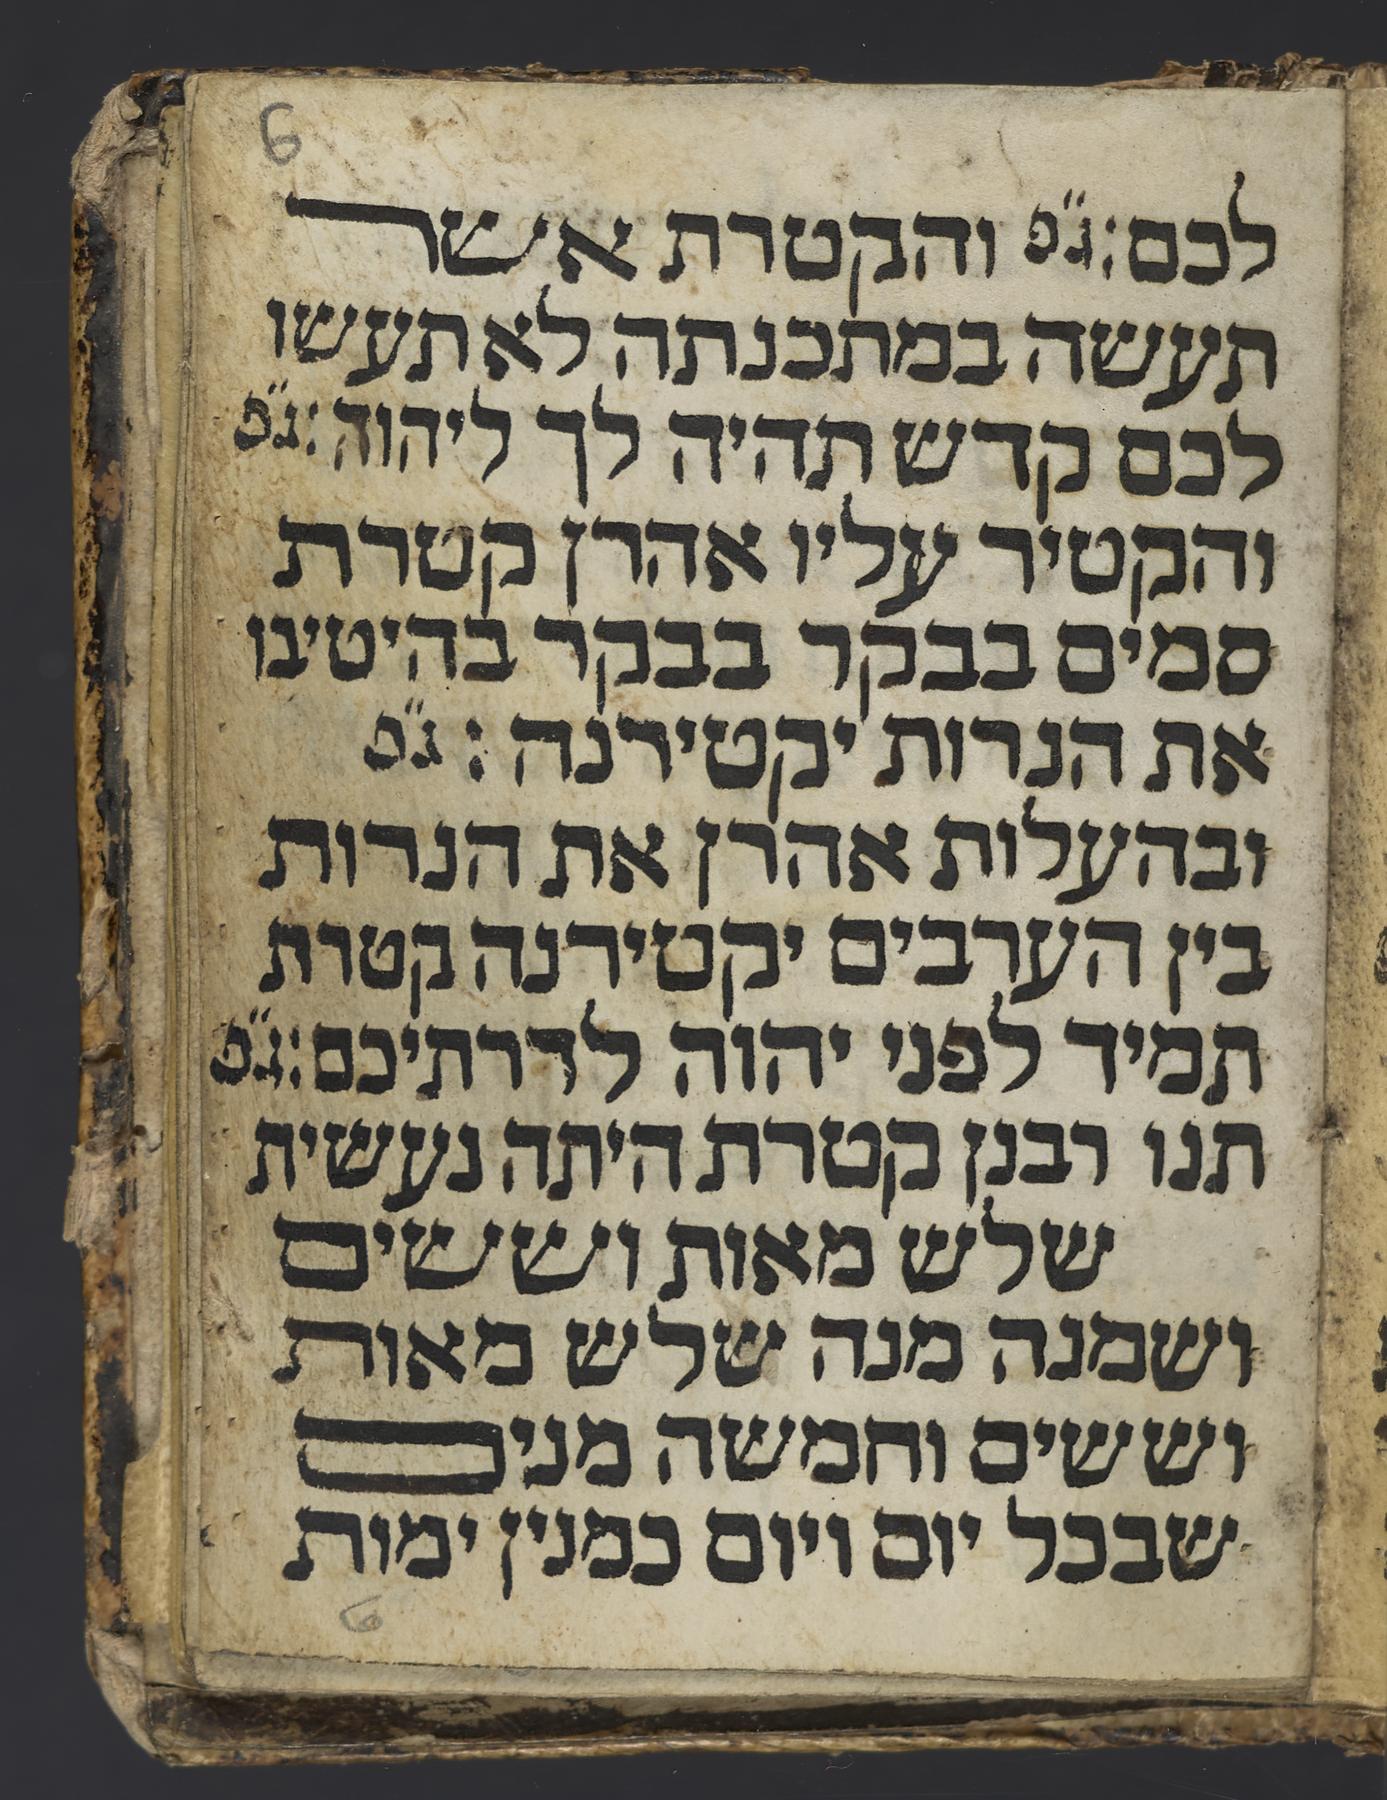 6
לכם: ג״פ והקטרת אשר
תעשה במתכנתה לא תעשו
לכם קדש תהיה לך ליהוה: ג״פ
והקטיר עליו אהרן קטרת
סמים בבקר בבקר בהיטיבו
את הנרות יקטירנה : ג״פ
ובהעלות אהרן את הנרות
בין הערבים יקטירנה קטרת
תמיד לפני יהוה לדרתיכם: ג״פ
תנו רבנן קטרת היתה נעשית
שלש מאות וששים
ושמנה מנה שלש מאות
וששים וחמשה מנים
שבכל יום ויום כמנין ימות
6